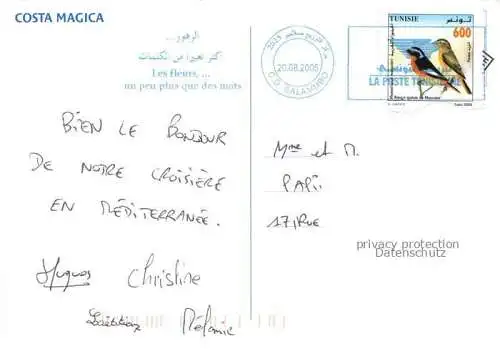 COSTA MAGICA
الزهور...
أكثر تعبيرا من الكلمات
Les fleurs, ...
un peu plus que des mots
BIEN LE BONJOUR
DE NOTRE CROISIÈRE
EN MÉDITERRANÉE.
Hugues Christine
Laëtitia Mélanie
20.08.2005
C.D. SALAMMBO
TUNISIE تونس
600
LA POSTE TUNISIENNE
Mme et M.
PAPI
17, RUE
privacy protection
Datenschutz